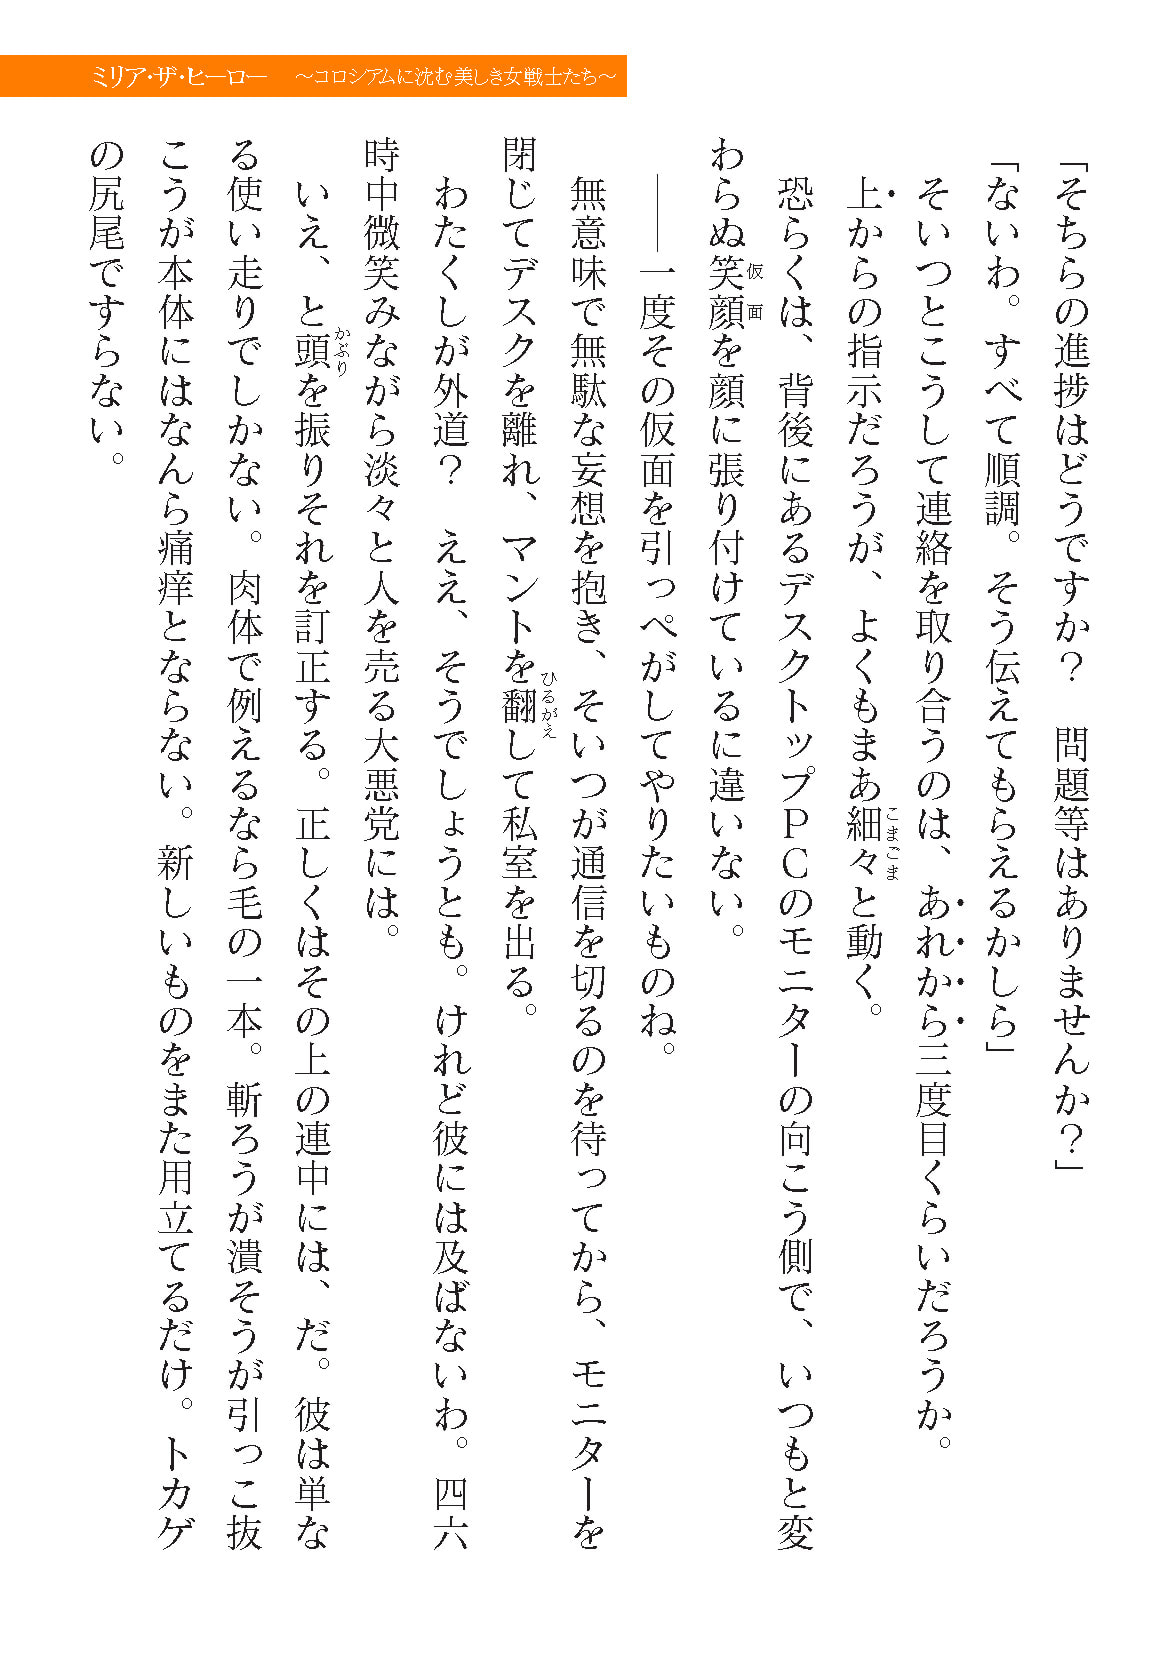 ミリア・ザ・ヒーロー　～コロシアムに沈む美しき女戦士たち～
「そちらの進捗はどうですか？　問題等はありませんか？」
「ないわ。すべて順調。そう伝えてもらえるかしら」
　そいつとこうして連絡を取り合うのは、あれから三度目くらいだろうか。
　上からの指示だろうが、よくもまあ細々こまごまと動く。
　恐らくは、背後にあるデスクトップＰＣのモニターの向こう側で、いつもと変
わらぬ笑顔仮面を顔に張り付けているに違いない。
　――一度その仮面を引っぺがしてやりたいものね。
　無意味で無駄な妄想を抱き、そいつが通信を切るのを待ってから、モニターを
閉じてデスクを離れ、マントを翻ひるがえして私室を出る。
　わたくしが外道？　ええ、そうでしょうとも。けれど彼には及ばないわ。四六
時中微笑みながら淡々と人を売る大悪党には。
　いえ、と頭かぶりを振りそれを訂正する。正しくはその上の連中には、だ。彼は単な
る使い走りでしかない。肉体で例えるなら毛の一本。斬ろうが潰そうが引っこ抜
こうが本体にはなんら痛痒とならない。新しいものをまた用立てるだけ。トカゲ
の尻尾ですらない。